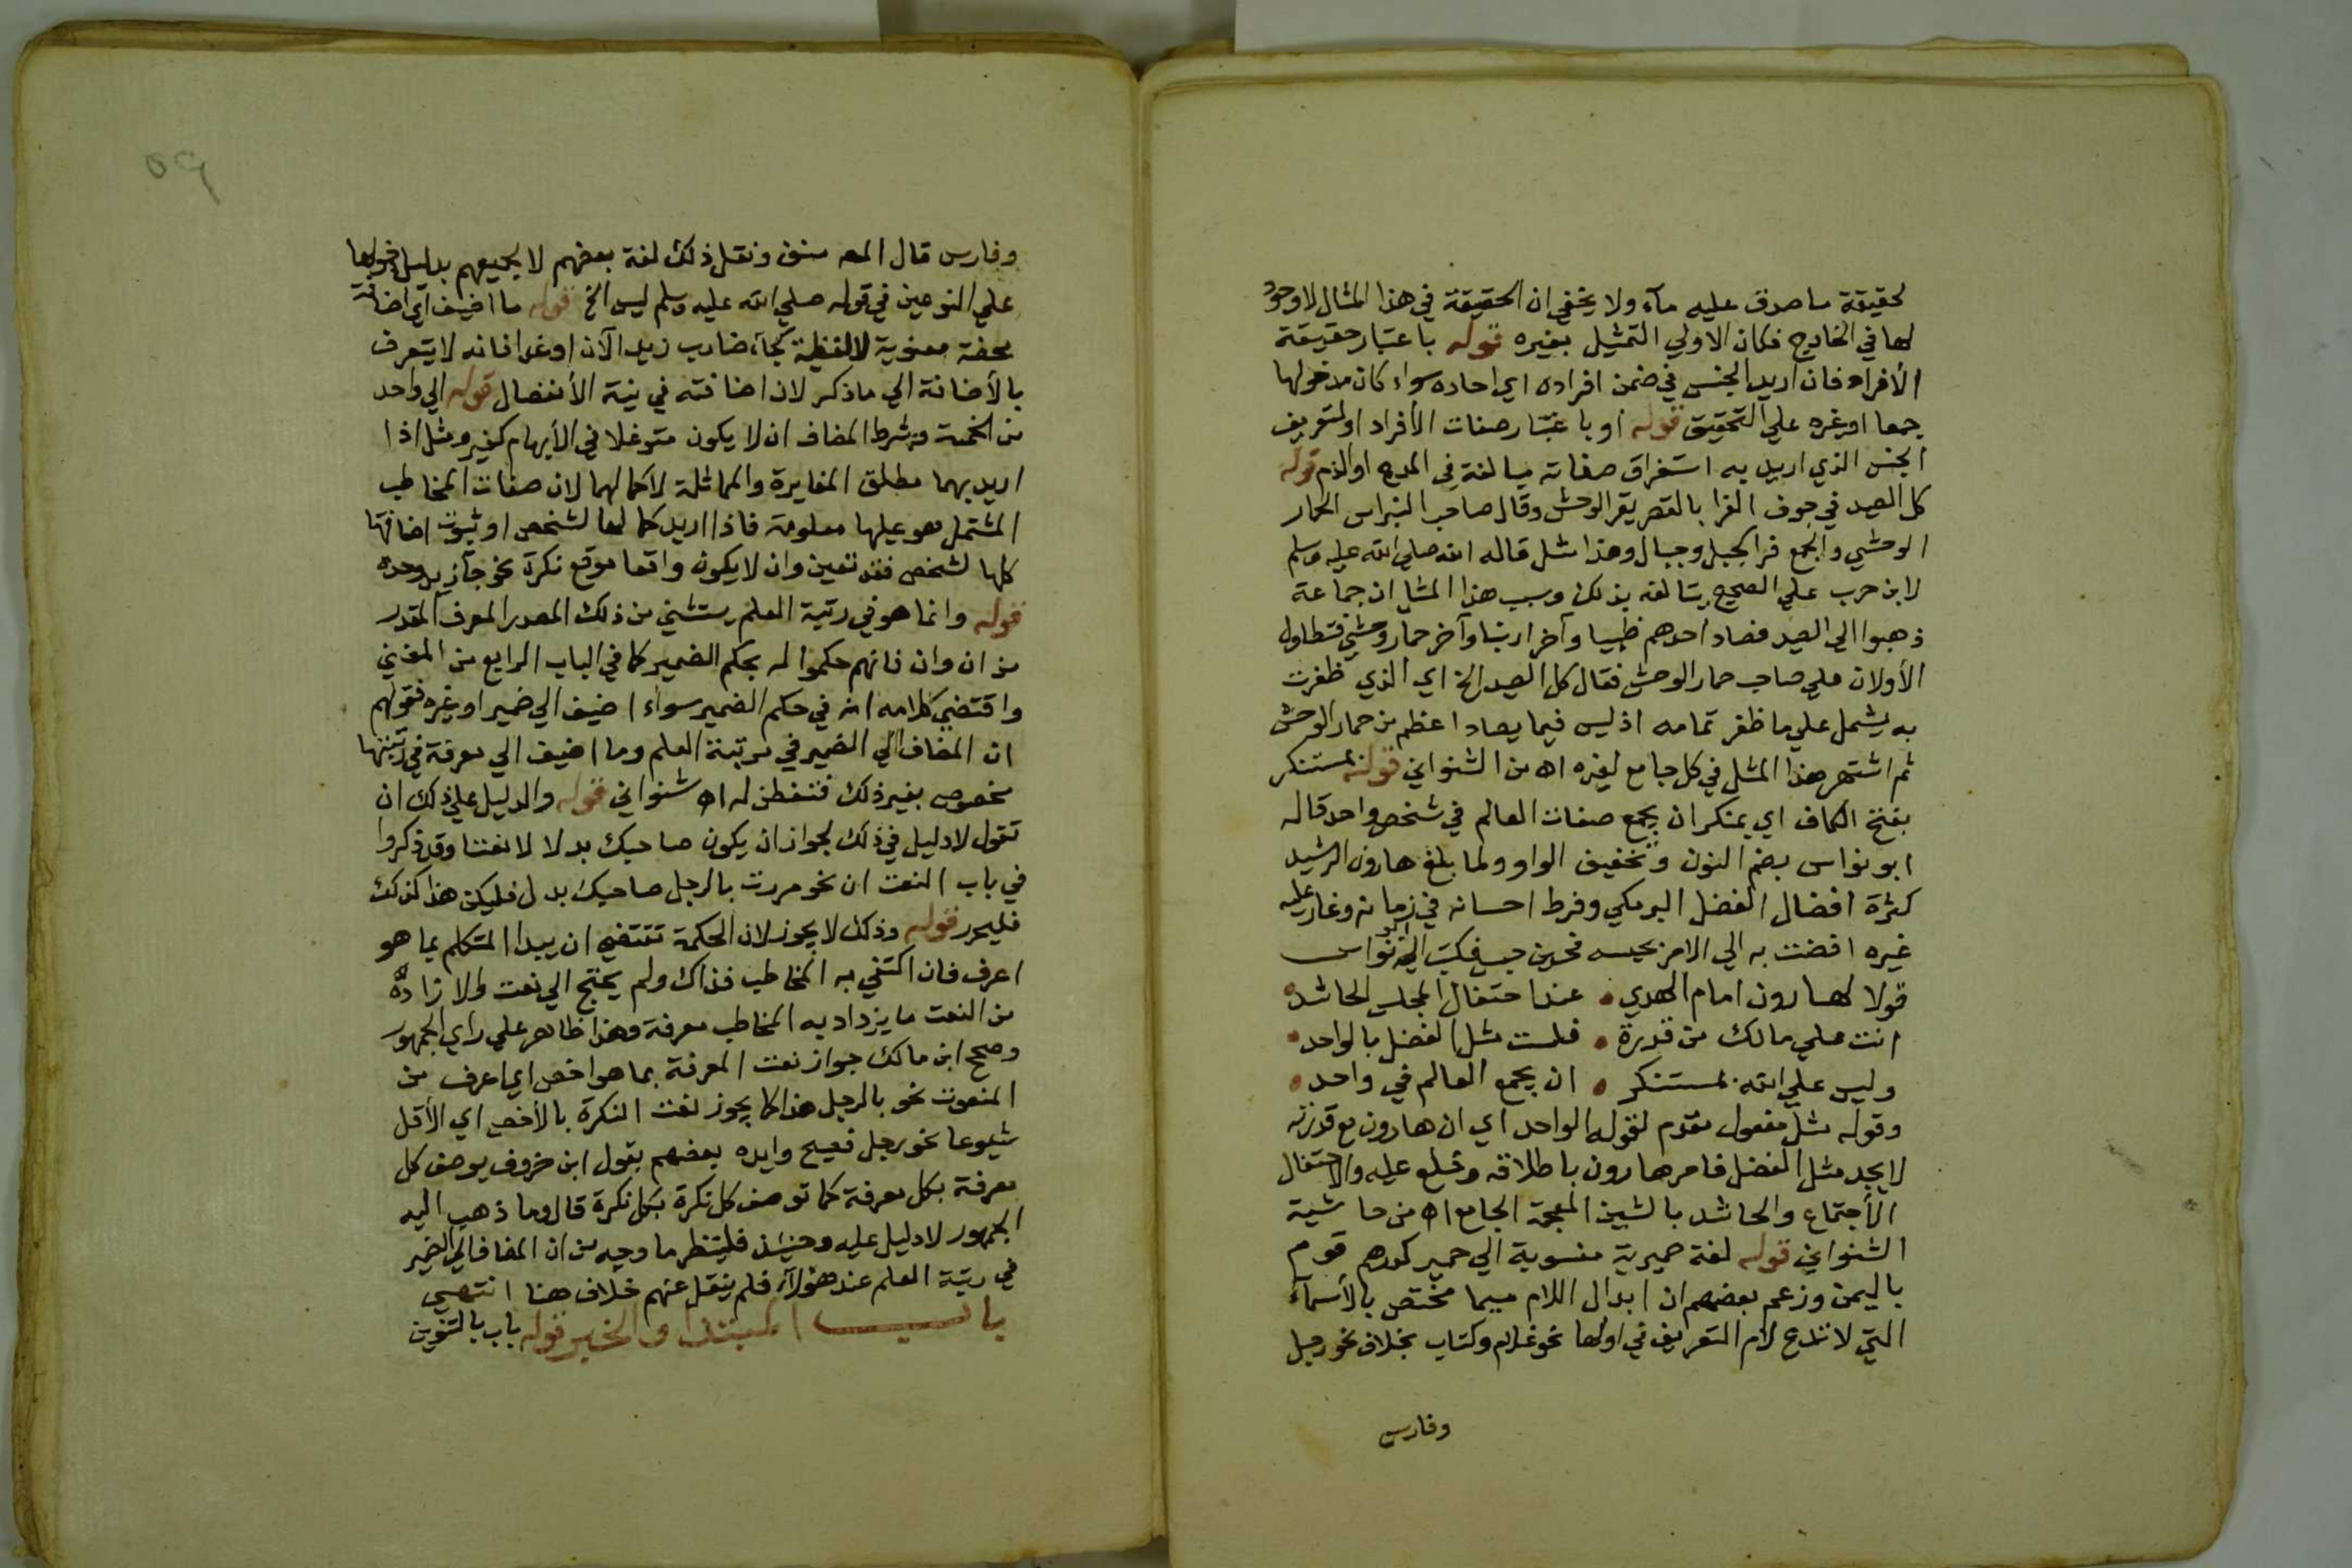 لحقيقة ما صدق عليه مآء ولا يخفي ان الحقيقة في هذا المثال لا وجود
لها في الخارج فكان الاولي التمثيل بغيره قوله باعتبار حقيقة
الأفراد فان اريد الجنس في ضمن افراده اي احاده سواء كان مدخولها
جمعا او غيره علي التحقيق قوله او باعتبار صفات الأفراد او لتعريف
الجنس الذي اريد به استغراق صفاته مبالغة في المدح او الذم قوله
كل الصيد في جوف الفرا بالقصر بقر الوحش وقال صاحب النبراس الحمار
الوحشي والجمع فرا كجبل وجبال وهذا مثل قاله الله صلي الله عليه وسلم
لابن حرب علي الصحيح يتالفه بذلك وسبب هذا المثل ان جماعة
ذهبوا الي الصيد فصاد احدهم ظبيا وآخر ارنبا وآخر حمار وحشي فتطاول
الأولان علي صاحب حمار الوحش فقال كل الصيد الخ اي الذي ظفرت
به يشمل علي ما ظفر تمامه اذ ليس فيما يصاد اعظم من حمار الوحش
ثم اشتهر هذا المثل في كل جامع لغيره اه من الشنواني قوله بمستنكر
بفتح الكاف اي بمنكر ان يجمع صفات العالم في شخص واحد قاله
ابو نواس بضم النون وتخفيف الواو ولما بلغ هارون الرشيد
كثرة افضال الفضل البرمكي وفرط احسانه في زمانه وغار عليه
غيره افضت به الي الامر بحبسه فحين حبس فكتب اليه ابو نواس
قولا لهارون امام الهدي • عند احتفال المجلس الحاشد •
انت علي مالك من قدرة • فلست مثل الفضل بالواجد •
وليس علي الله بمستنكر • ان يجمع العالم في واحد •
وقوله مثل مفعول مقدم لقوله الواجد اي ان هارون مع قدرته
لا يجد مثل الفضل فامر هارون باطلاقه وخلع عليه والاحتفال
الأجتماع والحاشد بالشين المعجمة الجامع اه من حاشية
الشنواني قوله لغة حميرية منسوبة الي حمير كدرهم قوم
باليمن وزعم بعضهم ان ابدال اللام ميما مختص بالأسمآء
التي لا تدغم لام التعريف في اولها نحو غلام وكتاب بخلاف نحو رجل
وفارس
٥٩
وفارس قال المصنف ونقل ذلك لغة بعضهم لا لجميعهم بدليل دخولها
علي النوعين في قوله صلي الله عليه وسلم ليس الخ قوله ما اضيف اي اضافة
محضة معنوية لا لفظية كجآء ضارب زيد الآن او غدا فانه لا يتعرف
بالأضافة الي ما ذكر لان اضافته في نية الأنفصال قوله الي واحد
من الخمسة وشرط المضاف ان لا يكون متوغلا في الأبهام كغير ومثل اذا
اريد بهما مطلق المغايرة والمماثلة لا كمالهما لان صفات المخاطب
المشتمل هو عليها معلومة فاذا اريد كمالها لشخص او ثبوت اضافتها
كلها لشخص فقد تعين وان لا يكون واقعا موقع نكرة نحو جآء زيد وحده
قوله وانما هو في رتبة العلم يستثني من ذلك المصدر المعرف المقدر
من ان وان فانهم حكموا له بحكم الضمير كما في الباب الرابع من المغني
واقتضي كلامه انه في حكم الضمير سواء اضيف الي ضمير او غيره فقولهم
ان المضاف الي الضمير في مرتبة العلم وما اضيف الي معرفة في رتبتها
مخصوص بغير ذلك فتفطن له اه شنواني قوله والدليل علي ذلك ان
تقول لا دليل في ذلك لجواز ان يكون صاحبك بدلا لا نعتا وقد ذكروا
في باب النعت ان نحو مررت بالرجل صاحبك بدل فليكن هذا كذلك
فليحرر قوله وذلك لا يجوز لان الحكمة تقتضي ان يبدا المتكلم بما هو
اعرف فان اكتفي به المخاطب فذاك ولم يحتج الي نعت والا زاده
من النعت ما يزداد به المخاطب معرفة وهذا ظاهر علي راي الجمهور
وصحح ابن مالك جواز نعت المعرفة بما هو اخص اي اعرف من
المنعوت نحو بالرجل هذا كما يجوز نعت النكرة بالأخص اي الأقل
شيوعا نحو رجل فصيح وايده بعضهم بقول ابن خروف يوصف كل
معرفة بكل معرفة كما توصف كل نكرة بكل نكرة قال وما ذهب اليه
الجمهور لا دليل عليه وحينئذ فلينظر ما وجه من ان المضاف الي الضمير
في رتبة العلم عند هؤلآء فلم ينقل عنهم خلاف هنا انتهي
باب المبتدا والخبر قوله باب بالتنوين